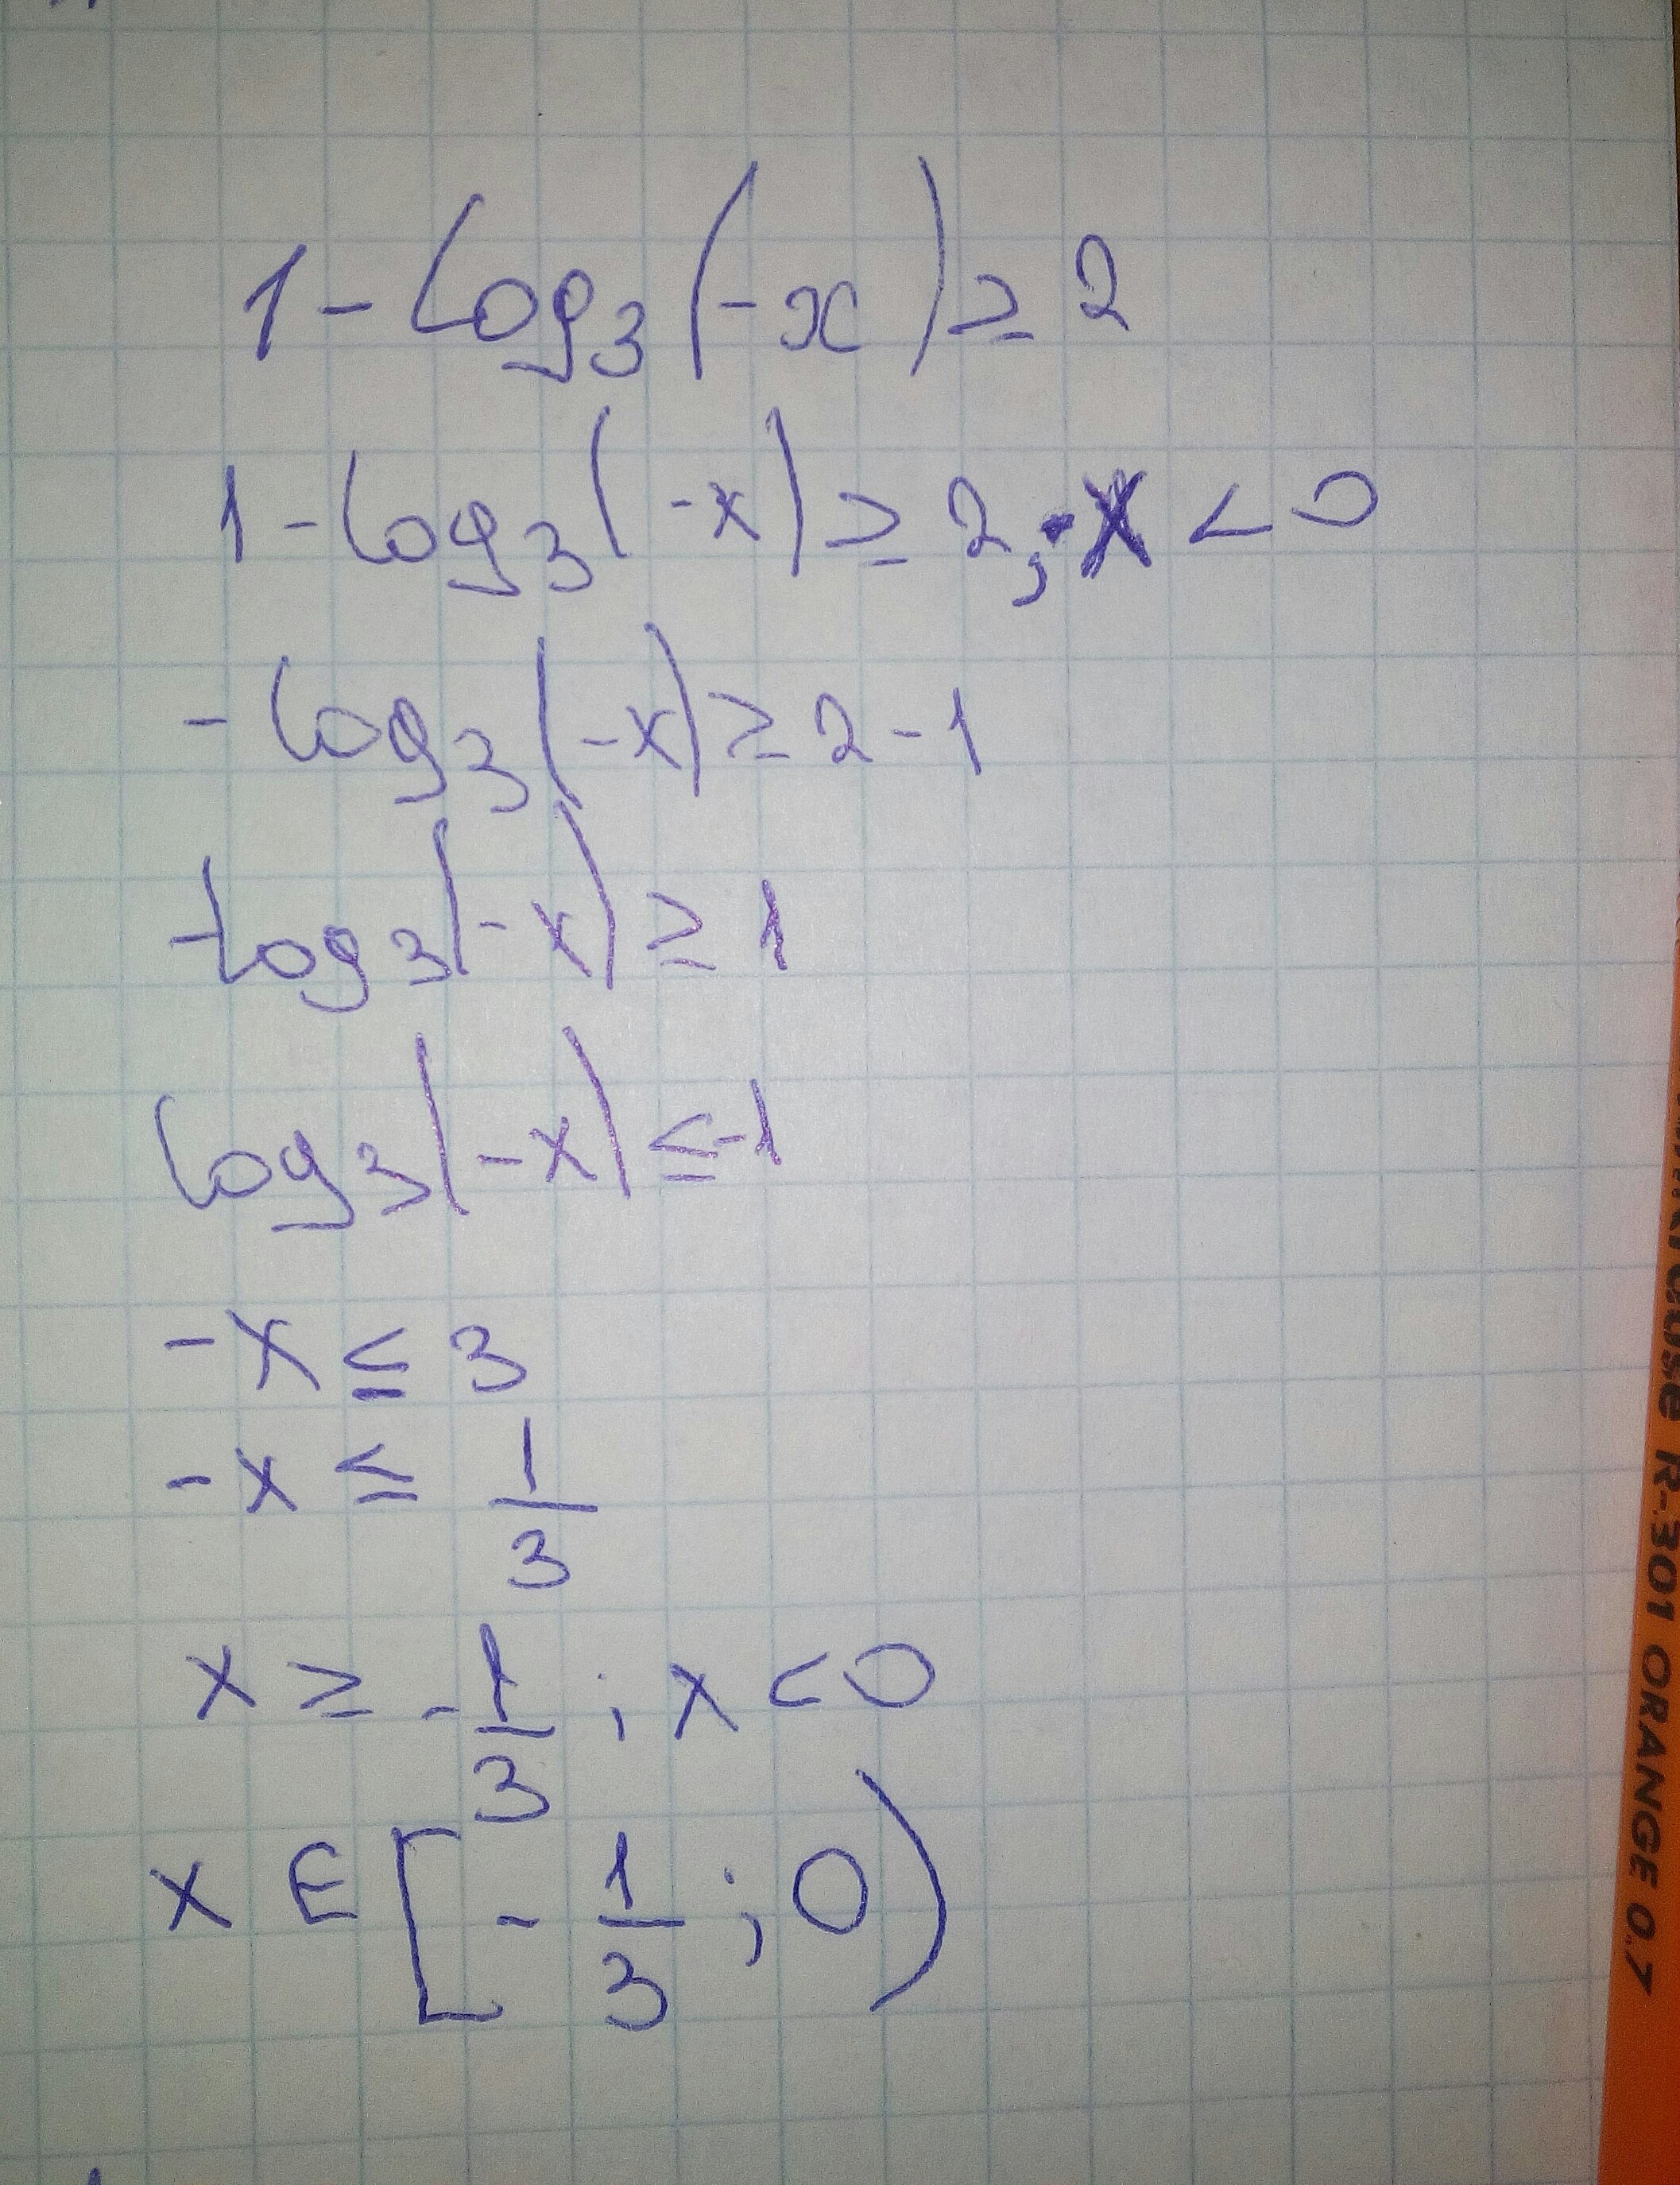 1 - log₃(-x) ≥ 2
1 - log₃(-x) ≥ 2; x < 0
- log₃(-x) ≥ 2 - 1
- log₃(-x) ≥ 1
log₃(-x) ≤ -1
-x ≤ 3
-x ≤ 1/3
x ≥ -1/3 ; x < 0
x ∈ [-1/3 ; 0)
R-301 ORANGE 0.7